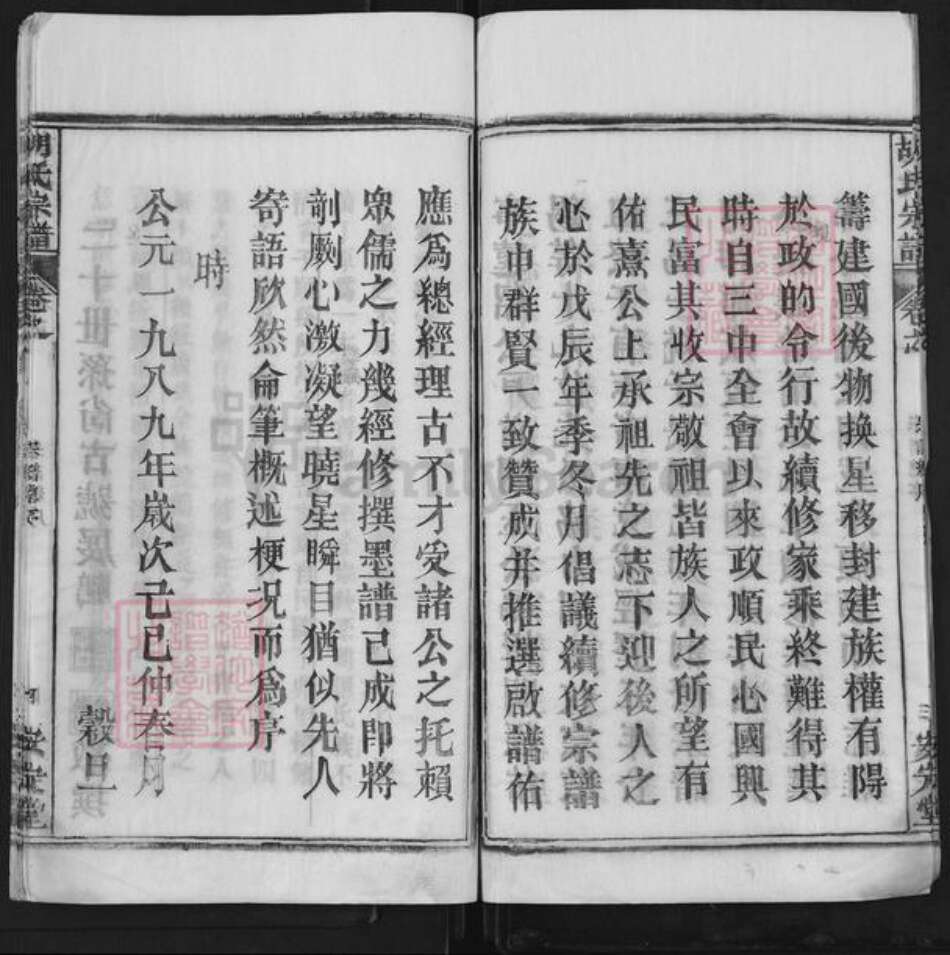 胡氏宗譜
籌建國後物換星移封建族權有隝
於政的令行故續修家乘終難得其
時自三中全會以來政順民心國興
民富其收宗敬祖皆族人之所望有
佑熹公上承祖先之志下迎後人之
心於戊辰年季冬月倡議續修宗譜
族中群賢一致贊成并推選啟譜佑
應爲總經理古不才受諸公之托賴
眾儒之力幾經修撰墨譜已成即將
剞劂心激凝望曉星瞬目猶似先人
寄語欣然侖筆概述梗況而爲序
時
公元一九八九年歲次己巳仲春月
穀旦
胡氏宗譜